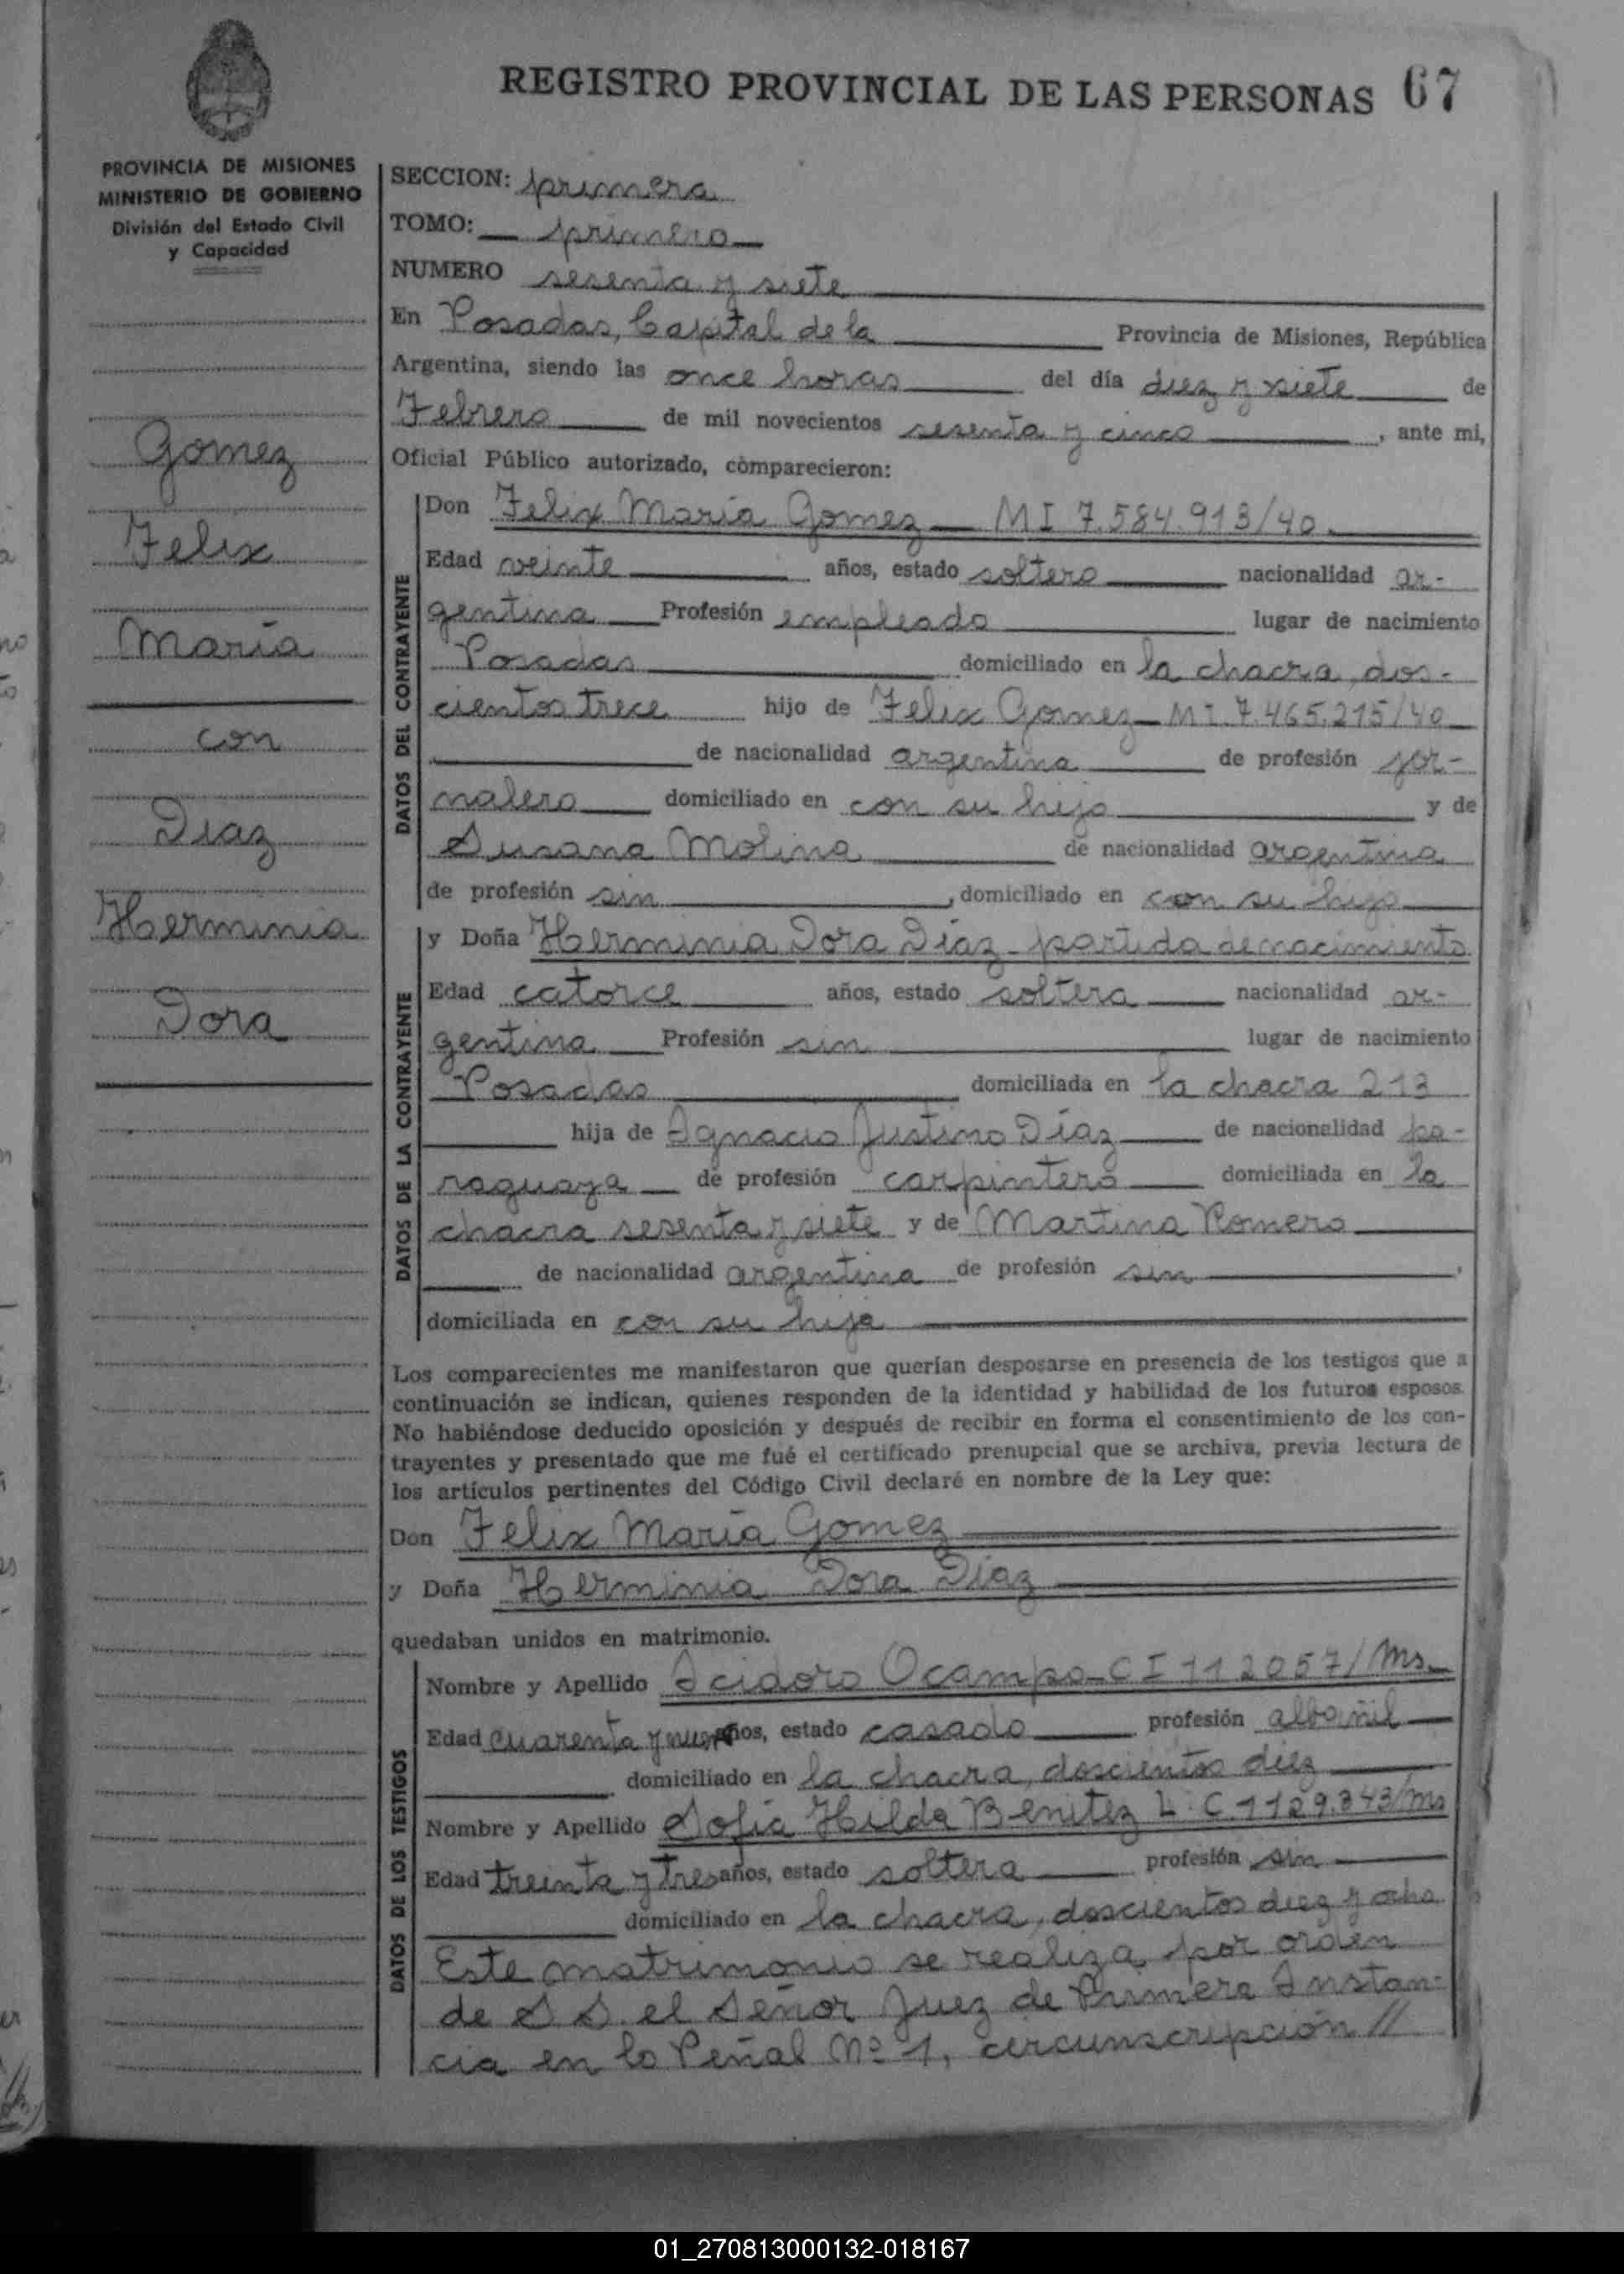 REGISTRO PROVINCIAL DE LAS PERSONAS 67
PROVINCIA DE MISIONES
MINISTERIO DE GOBIERNO
División del Estado Civil
y Capacidad
Gomez
Felix
María
con
Diaz
Herminia
Dora
SECCION: primera
TOMO: primero
NUMERO sesenta y siete
En Posadas, Capital de la Provincia de Misiones, República
Argentina, siendo las once horas del día diez y siete de
Febrero de mil novecientos sesenta y cinco, ante mi,
Oficial Público autorizado, comparecieron:
DATOS DEL CONTRAYENTE
Don Felix María Gomez - MI 7.584.913/40
Edad veinte años, estado soltero nacionalidad ar-
gentina Profesión empleado lugar de nacimiento
Posadas domiciliado en la chacra, dos-
cientos trece hijo de Felix Gomez - M I. 7.465.215/40
de nacionalidad argentina de profesión jor-
nalero domiciliado en con su hijo y de
Susana Molina de nacionalidad argentina
de profesión sin, domiciliado en con su hijo
DATOS DE LA CONTRAYENTE
y Doña Herminia Dora Díaz - partida de nacimiento
Edad catorce años, estado soltera nacionalidad ar-
gentina Profesión sin lugar de nacimiento
Posadas domiciliada en la chacra 213
hija de Ignacio Justino Díaz de nacionalidad pa-
raguaya de profesión carpintero domiciliada en la
chacra sesenta y siete y de Martina Romero
de nacionalidad argentina de profesión sin,
domiciliada en con su hija
Los comparecientes me manifestaron que querían desposarse en presencia de los testigos que a
continuación se indican, quienes responden de la identidad y habilidad de los futuros esposos.
No habiéndose deducido oposición y después de recibir en forma el consentimiento de los con-
trayentes y presentado que me fué el certificado prenupcial que se archiva, previa lectura de
los artículos pertinentes del Código Civil declaré en nombre de la Ley que:
Don Felix María Gomez
y Doña Herminia Dora Díaz
quedaban unidos en matrimonio.
DATOS DE LOS TESTIGOS
Nombre y Apellido Icidoro Ocampo - C I 112057/Ms.
Edad cuarenta y años, estado casado profesión albañil
domiciliado en la chacra, doscientos diez
Nombre y Apellido Sofia Hilda Benitez L. C. 1129.343/Ms
Edad treinta y tres años, estado soltera profesión sin
domiciliado en la chacra, doscientos diez y ocho
Este matrimonio se realiza por orden
de S S. el Señor Juez de Primera Instan-
cia en lo Penal Nº 1, circunscripción //
01_270813000132-018167